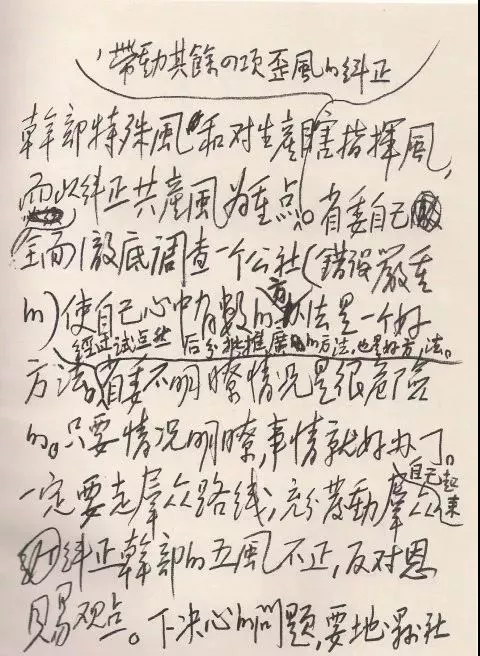 ，帶動其餘四项歪風的糾正
幹部特殊風和对生產瞎指揮風，
而以糾正共產風為重点。省委自己
全面徹底调查一个公社（錯誤嚴重
的）使自己心中有數的方法是一个好
經过试点然后分批推廣的方法，也是好方法。
方法。省委不明瞭情况是很危險
的。只要情况明瞭，事情就好办了。
自己起来
一定要走羣众路线，充分發動羣众
糾正幹部的五風不正，反对恩
賜观点。下决心的问题，要地县社